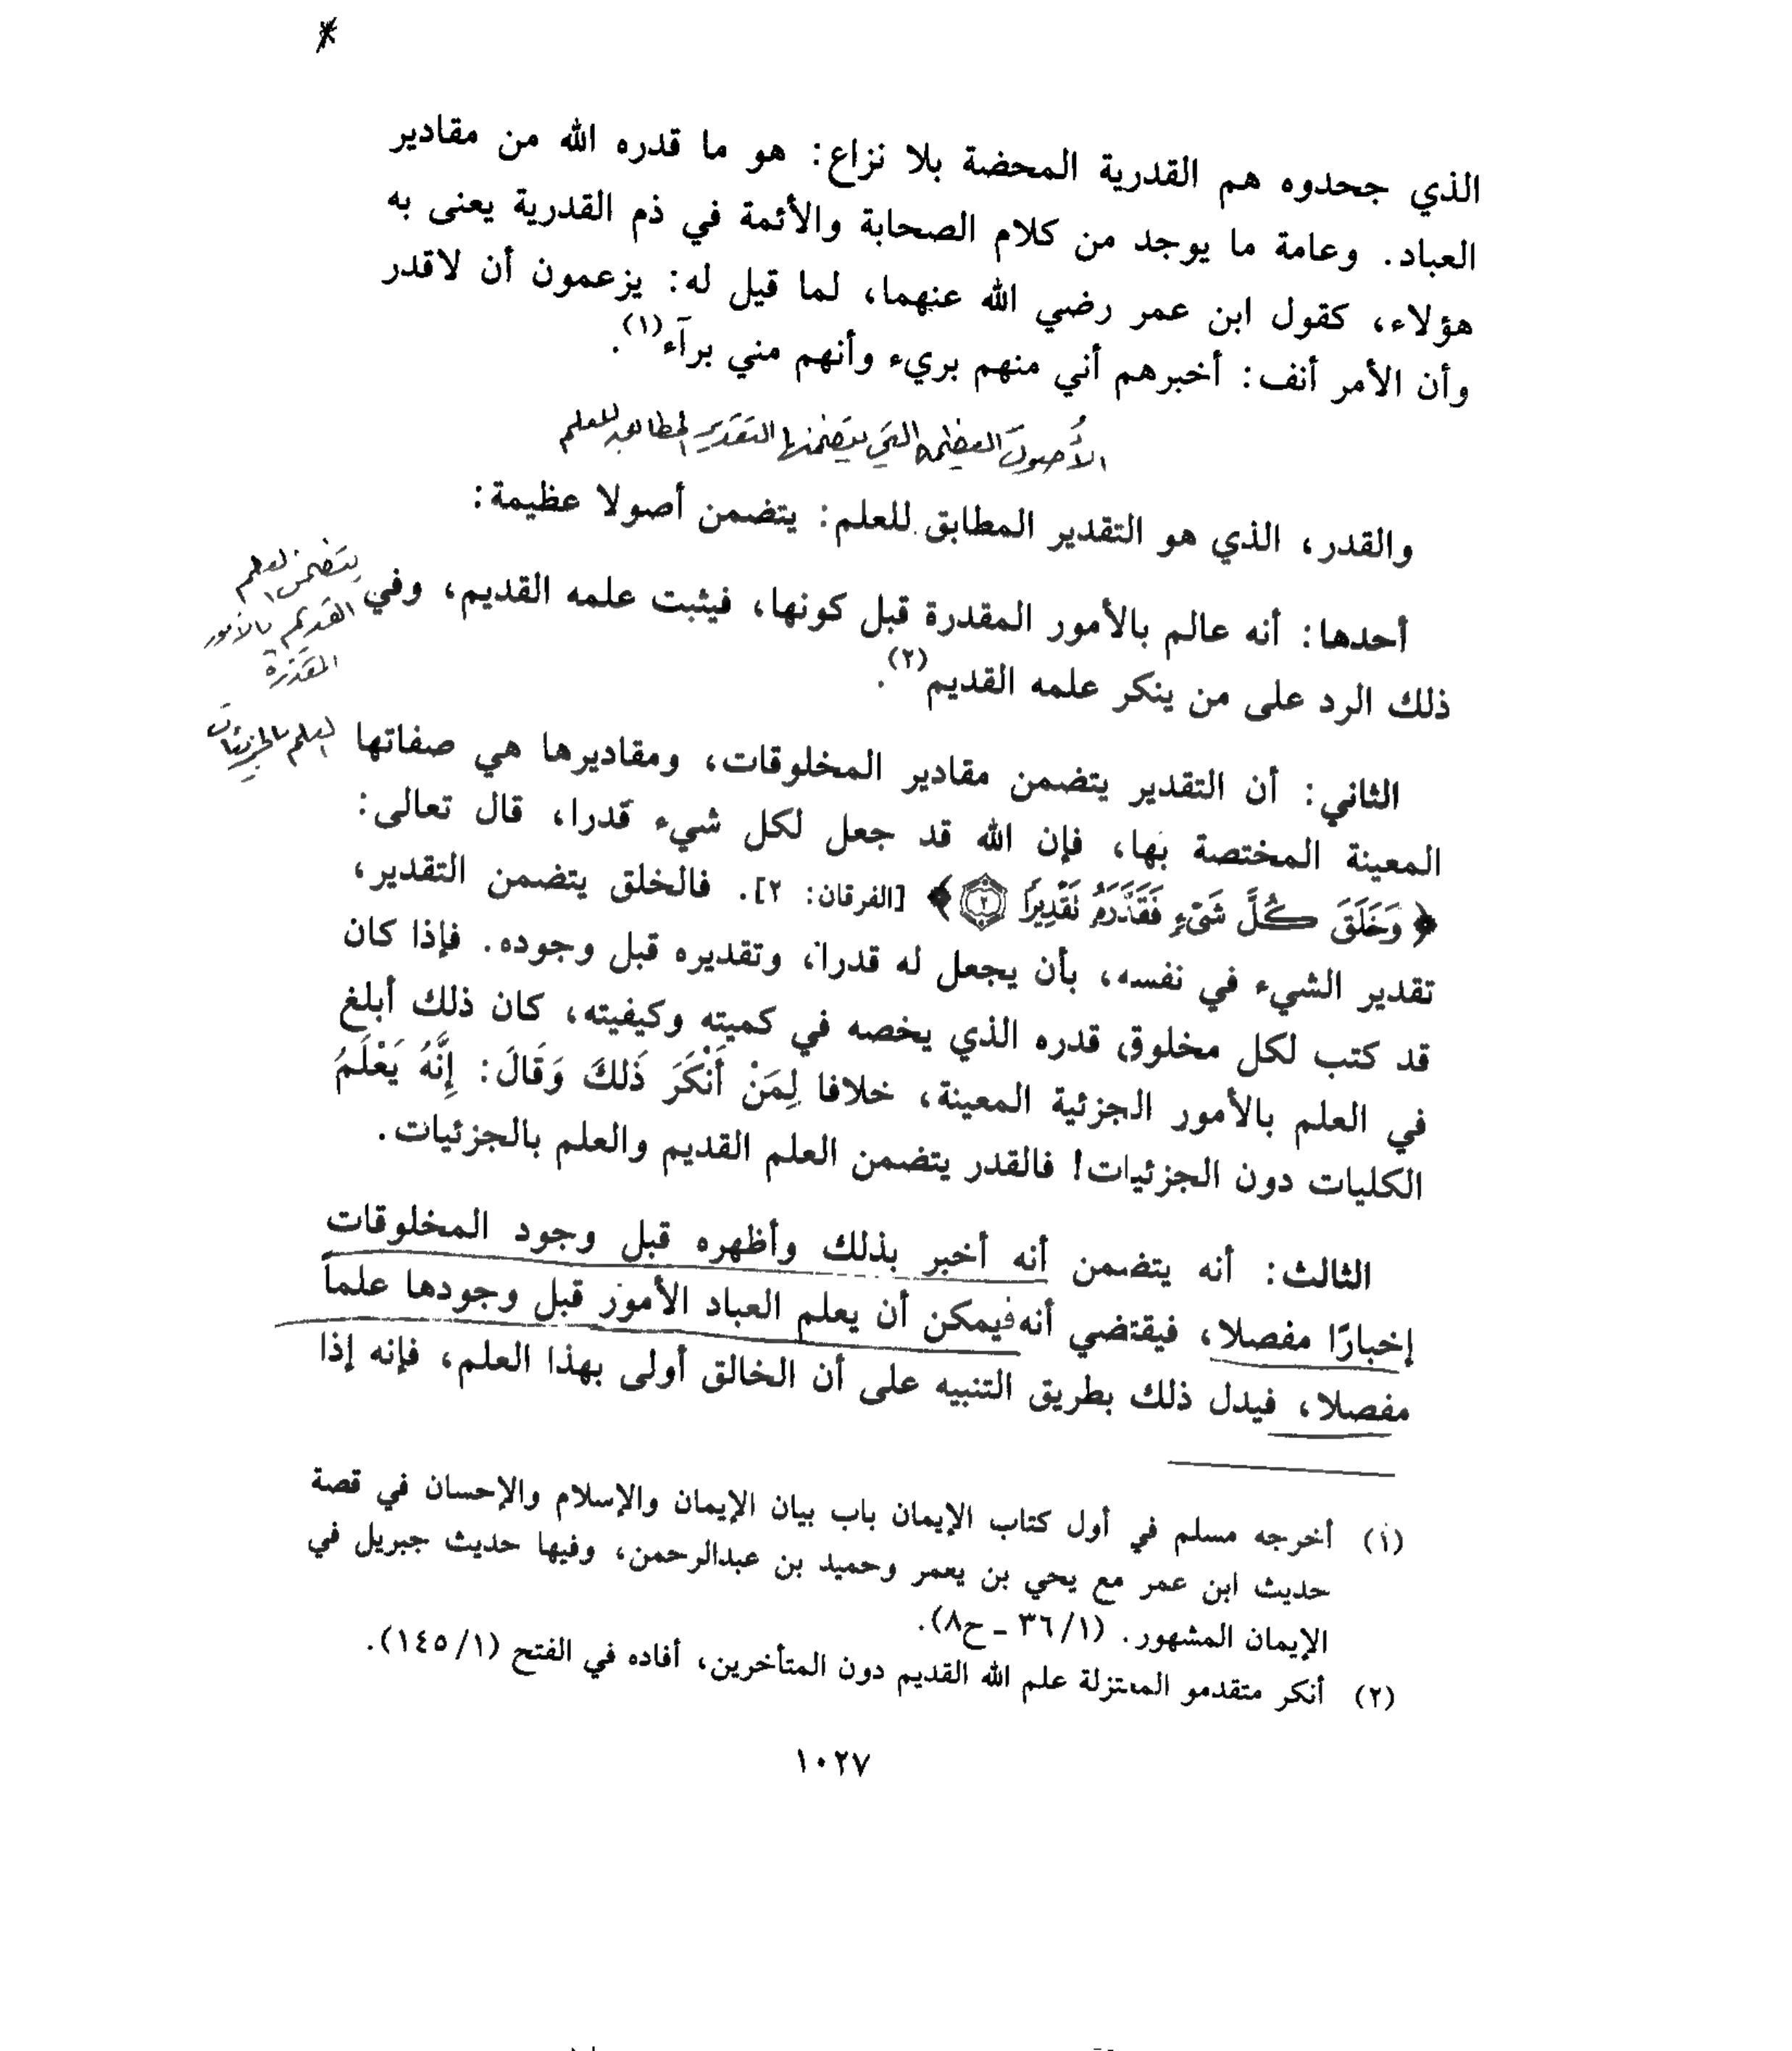 الذي جحدوه هم القدرية المحضة بلا نزاع: هو ما قدره الله من مقادير
العباد. وعامة ما يوجد من كلام الصحابة والأئمة في ذم القدرية يعنى به
هؤلاء، كقول ابن عمر رضي الله عنهما، لما قيل له: يزعمون أن لاقدر
وأن الأمر أنف: أخبرهم أني منهم بريء وأنهم مني برآء(١).
الأُصول العظيمة التي يتضمنها التقدير المطابق للعلم
والقدر، الذي هو التقدير المطابق للعلم: يتضمن أصولا عظيمة:
أحدها: أنه عالم بالأمور المقدرة قبل كونها، فيثبت علمه القديم، وفي
ذلك الرد على من ينكر علمه القديم(٢).
يتضمن العلم
القديم بالأمور
المقدرة
الثاني: أن التقدير يتضمن مقادير المخلوقات، ومقاديرها هي صفاتها
العلم بالجزئيات
المعينة المختصة بها، فإن الله قد جعل لكل شيء قدرا، قال تعالى:
﴿وَخَلَقَ كُلَّ شَيْءٍ فَقَدَّرَهُ تَقْدِيرًا ٢﴾ [الفرقان: ٢]. فالخلق يتضمن التقدير،
تقدير الشيء في نفسه، بأن يجعل له قدرا، وتقديره قبل وجوده. فإذا كان
قد كتب لكل مخلوق قدره الذي يخصه في كميته وكيفيته، كان ذلك أبلغ
في العلم بالأمور الجزئية المعينة، خلافا لِمَنْ أَنْكَرَ ذَلكَ وَقَالَ: إِنَّهُ يَعْلَمُ
الكليات دون الجزئيات! فالقدر يتضمن العلم القديم والعلم بالجزئيات.
الثالث: أنه يتضمن أنه أخبر بذلك وأظهره قبل وجود المخلوقات
إخبارًا مفصلا، فيقتضي أنه فيمكن أن يعلم العباد الأمور قبل وجودها علماً
مفصلا، فيدل ذلك بطريق التنبيه على أن الخالق أولى بهذا العلم، فإنه إذا
(١) أخرجه مسلم في أول كتاب الإيمان باب بيان الإيمان والإسلام والإحسان في قصة
حديث ابن عمر مع يحي بن يعمر وحميد بن عبدالرحمن، وفيها حديث جبريل في
الإيمان المشهور. (٣٦/١ - ح٨).
(٢) أنكر متقدمو المعتزلة علم الله القديم دون المتأخرين، أفاده في الفتح (١٤٥/١).
١٠٢٧